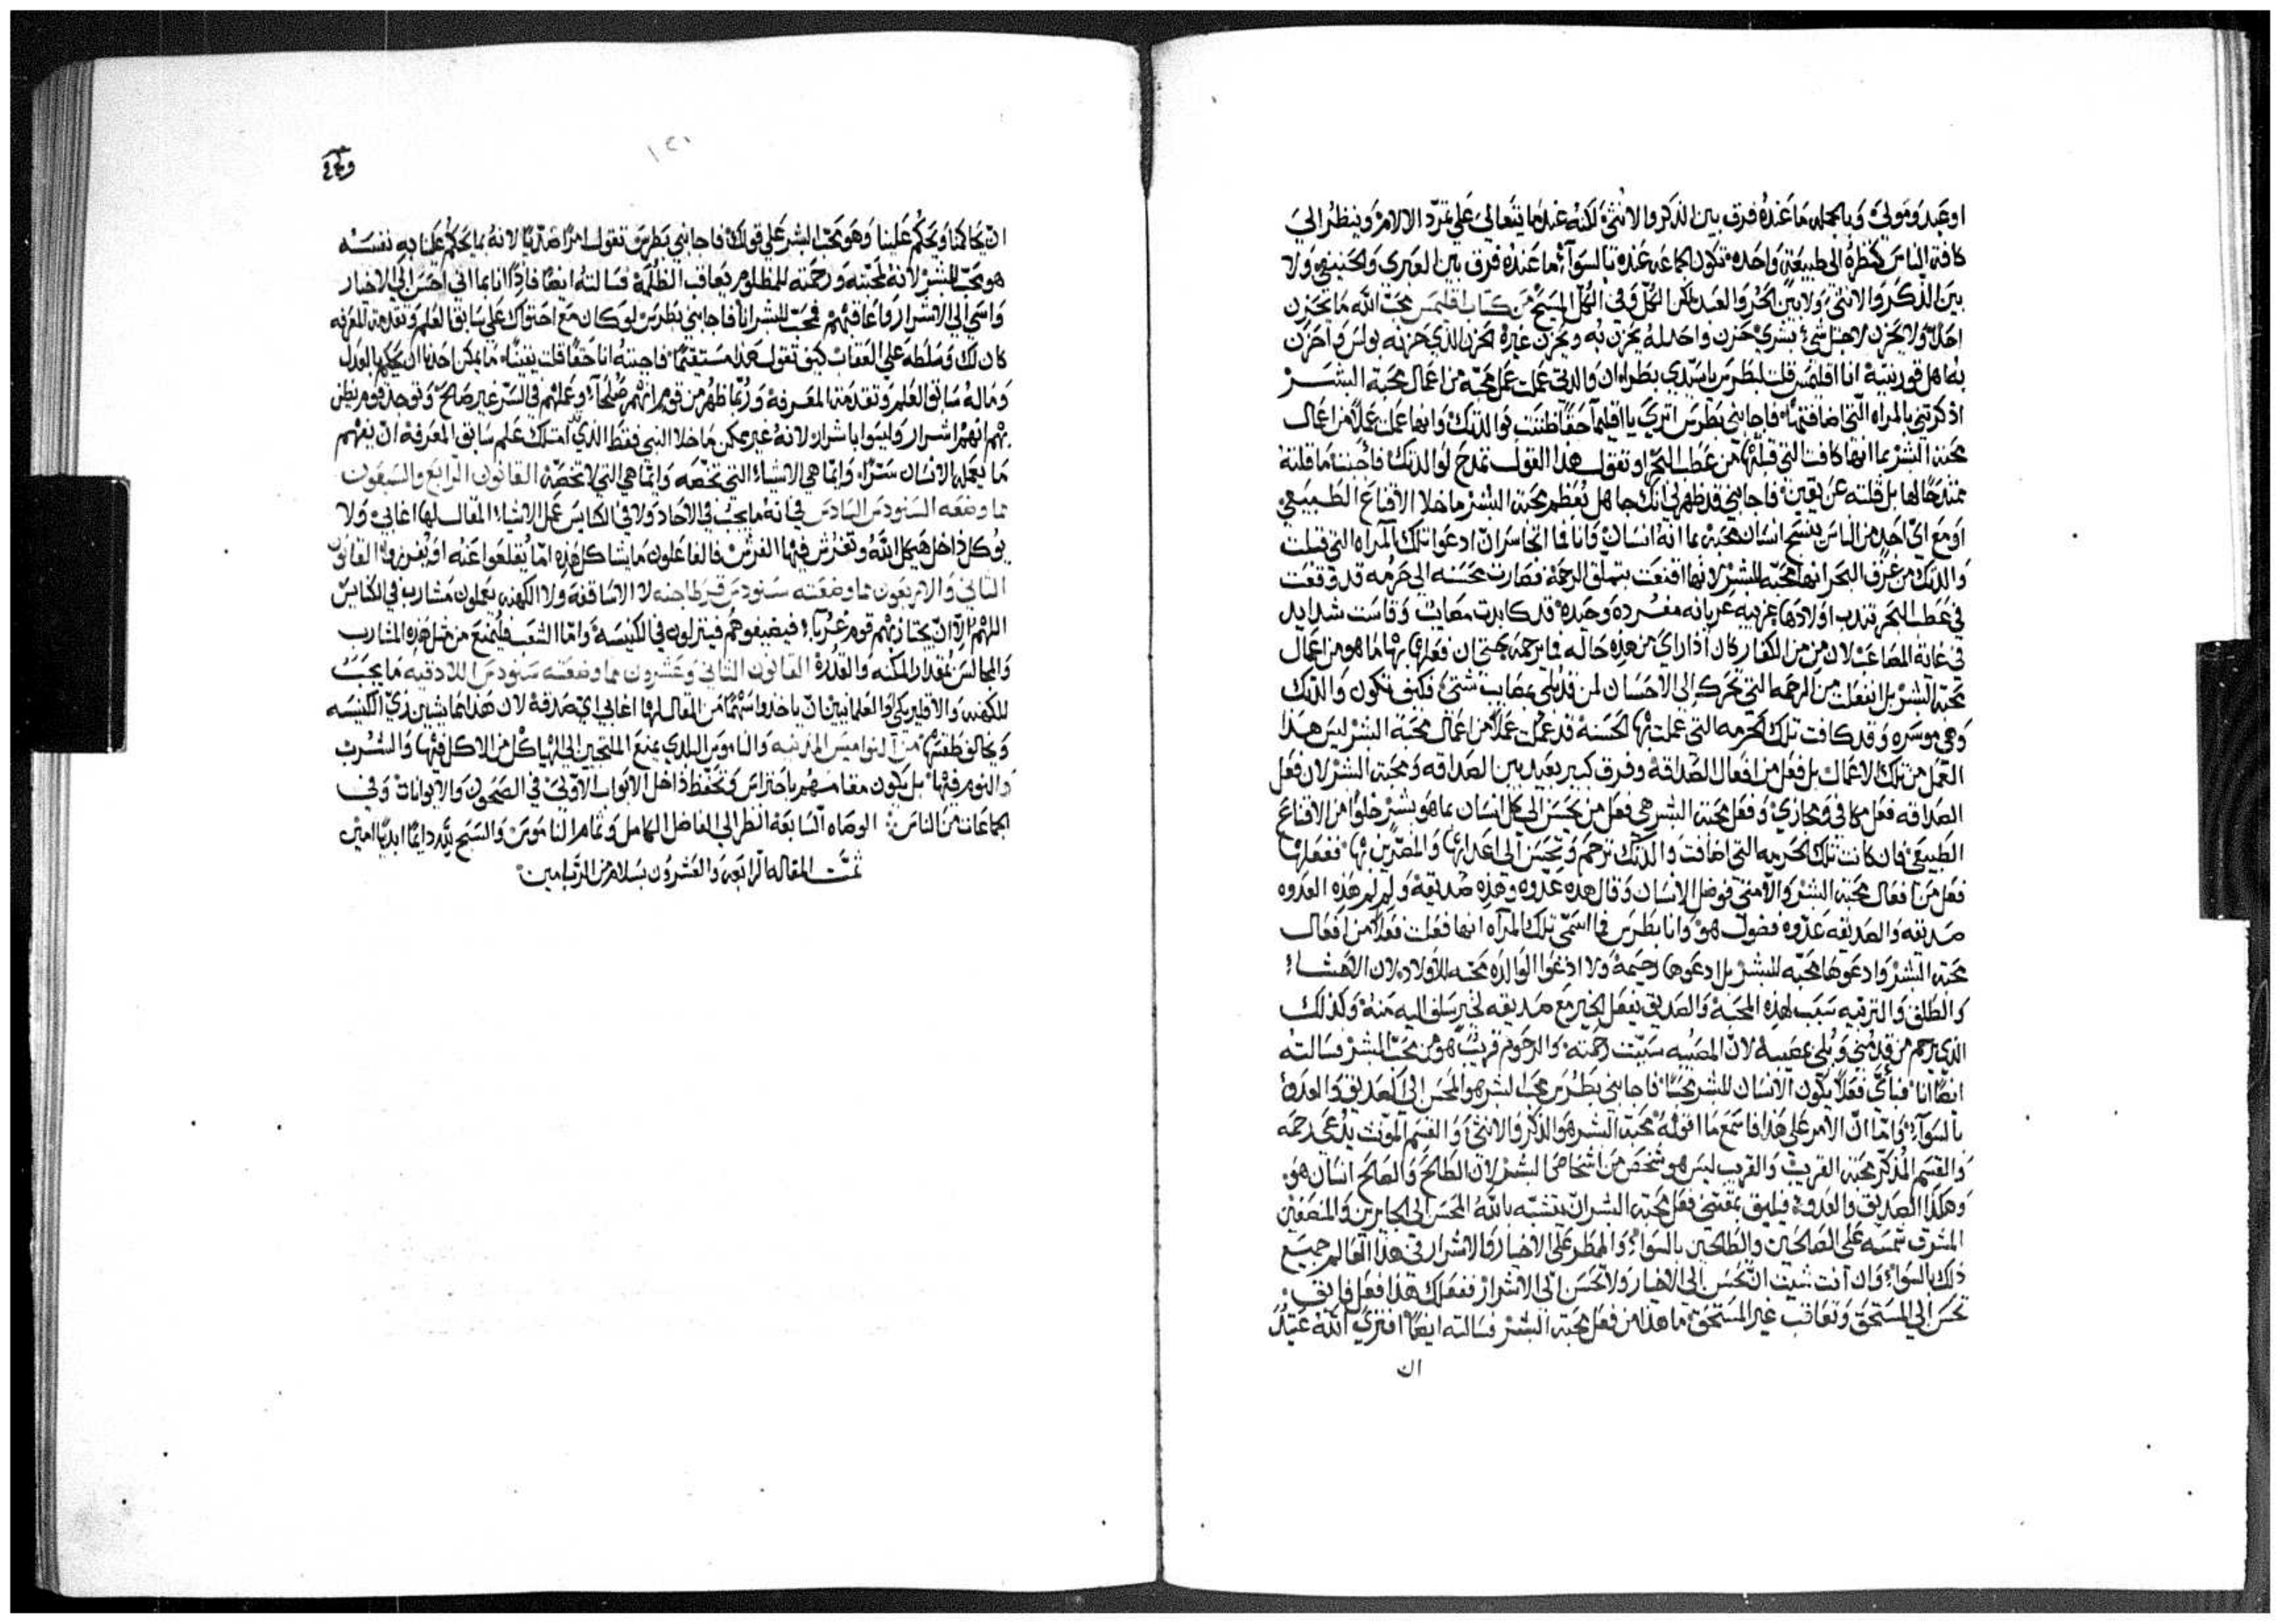 او عبد ومولى وبالجمله ما عنده فرق بين الذكر والانثى لكنه عندما يتعالى على تمرد الالام وينظر الى
كافة الناس كنظره الى طبيعة واحده تكون الجماعه عنده بالسوآء ما عنده فرق بين العبرى والحنيفى ولا
بين الذكر والانثى ولا بين الحر والعبد لكن الكل وفى الكل المسيح من كتاب اقليمس محب الله ما يحزن
احدًا ولا يحزن لاجل شى بشرى حزن واحد له يحزن به ويحزن غيره الحزن الذى حزنه بولس واحزن
به اهل قورنتية انا اقليمس قلت لبطرس ياسيدى بطرس ان والدتى عملت عمل محبه من اعمال محبة البشر
اذ كرتنى بالمراه التى اضافتها فاجابنى بطرس اترى يا اقليما حقًا ظننت لوالدتك وانها عملت عملاً من اعمال
محبة البشر بما انها كافت التى قبلتها من عطب البحر او تقول هذا القول تمدح لوالدتك فاجبت ما قلته
ممتدحًا لها بل قلته عن يقين فاجابنى قد ظهر لى انك جاهل بعظم محبة البشر ما خلا الاقناع الطبيعى
او مع اى احد من الناس بنسبح انسان محبة بما انه انسان وانا فما اتجاسر ان ادعوا تلك المراه التى قبلت
والدتك من غرق البحر انها محبه للبشر لانها اقتنعت بتملق الرحمة فصارت محسنه الى حرمه قد وقعت
فى عطب البحر تندب اولادها غريبه عريانه مفرده وحيده قد كابدت مصايب وقاست شدايد
فى غاية المصاعب لان من من الكفار كان اذا راى من هذه حاله فما يرحمه حتى ان فعلها بها ما هو من اعمال
محبة البشر بل انفعلت من الرحمه التى تحرك الى الاحسان لمن قد بلى بمصايب شتى فكيف تكون والدتك
وهى موسره وقد كافت تلك الحرمه التى عملت بها الحسنة قد عملت عملاً من اعمال محبة البشر ليس هذا
العمل من تلك الاعمال بل فعل من افعال الصداقة وفرق كبير بعيد بين الصداقه ومحبة البشر لان فعل
الصداقه فعل مكافى ومجازى وفعل محبة البشر هى فعل من يحسن الى كل انسان بما هو بشر خلوًا من الاقناع
الطبيعى فان كانت تلك الحرمه التى اضافت والدتك ترحم وتحسن الى اعدايها والمضرين بها ففعلها
فعل من افعال محبة البشر
صديقه والصديقه عدوه فضول هو وانا بطرس فما اسمى تلك المرآه انها فعلت فعلاً من افعال
محبة البشر وادعوها محبه للبشر بل ادعوها رحيمة ولا ادعوا الوالده محبه للاولاد لان الاحشاء
والطلق والتربيه سبب لهذه المحبة والصديق يفعل الخير مع صديقه لخير سلف اليه منه وكذلك
الذى يرحم من قد منى وبلى بمصيبه لان المصيبه سببت رحمته والرحوم قريب هو من محب البشر فسالته
ايضًا انا فباى فعلاً يكون الانسان للبشر محبًا فاجابنى بطرس محب البشر هو المحسن الى الصديق والعدو
بالسوآء واما ان الامر على هذا فاسمع ما اقوله محبة البشر هو الذكر والانثى والقسم المونث يدعى رحمه
والقسم المذكر محبة القريب والقريب ليس هو شخص من اشخاص البشر لان الطالح والصالح انسان هو
وهكذا الصديق والعدو فيليق بمقتنى فعل محبة البشر ان يتشبه بالله المحسن الى الجايرين والمنصفين
المشرق شمسه على الصالحين والطالحين بالسواء والممطر على الاخيار والاشرار فى هذا العالم جميع
ذلك بالسواء وان انت شيت ان تحسن الى الاخيار ولا تحسن الى الاشرار ففعلك هذا فعل
تحسن الى المستحق وتعاقب غير المستحق ما هذا من فعل محبة البشر فسالته ايضًا افترى الله عتيدًا
ان
١٢١
ان يحاكمنا ويحكم علينا وهو محب البشر على قولك فاجابنى بطرس تقول امرًا ضديًا لانه بما يحكم علينا به نفسه
هو محب البشر لانه لمحبته ورحمته للمظلوم يعاقب الظلمة فسالته ايضًا فاذًا انا بما انى احسن الى الاخيار
واسى الى الاشرار واعاقبهم فمحب للبشر انا فاجابنى بطرس لو كان مع احتواك على سابق العلم وتقدمة المعرفه
كان لك وسلطه على العقاب كنت تقول هذا مستقيمًا فاجبته انا حقًا قلت يقينًا ما يمكن احدًا ان يحكم بالعدل
وماله سابق العلم وتقدمة المعرفة وربما ظهر من قوم انهم صلحآء وعملهم فى السر غير صالح وتوجد قوم يظن
بهم انهم اشرار وليسوا باشرار لانه غير ممكن ما خلا النبى فقط الذى امتلك علم سابق المعرفه ان يفهم
ما يعمله الانسان سترًا وايما هى الاشياء التى تخصه وايما هى التى لا تخصه القانون الرابع والسبعون
مما وضعه السنودس السادس فى انه ما يجب فى الاحاد ولا فى الكنايس عمل الاشياء المقال لها اغابى ولا
يوكل داخل هيكل الله وتفرش فيها الفرش فالفاعلون ما يشاكل هذه اما يقلعوا عنه او يفرزوا القانون
الثانى والاربعون مما وضعته سنودس قرطاجنه لا الاساقفة ولا الكهنه يعملون مشارب فى الكنايس
اللهم الا ان يجتاز بهم قوم غربآء فيضيفوهم فينزلون فى الكنيسة واما الشعب فليمنع من مثل هذه المشارب
والمجالس بمقدار المكنه والقدرة القانون الثانى وعشرون مما وضعته سنودس اللادقيه ما يجب
للكهنه والاقليريكى او العلمانيين ان ياخذوا سهمًا من المقال لها اغابى اى صدقة لان هذا مما يشين زى الكنيسه
ويخالف طقسها من النواميس المدنيه والناموس البلدى يمنع الملتجين الى الهياكل من الاكل فيها والشرب
والنوم فيها بل يكون مقامهم باحتراس وتحفظ داخل الابواب الاولى فى الصحون والايوانات وفى
اجماعات من الناس الوصاه السابعة انظر الى الفاضل الكامل وتمام الناموس والسبح لله دايمًا ابديًا امين
تمت المقاله الرابعه والعشرون بسلام من الرب امين